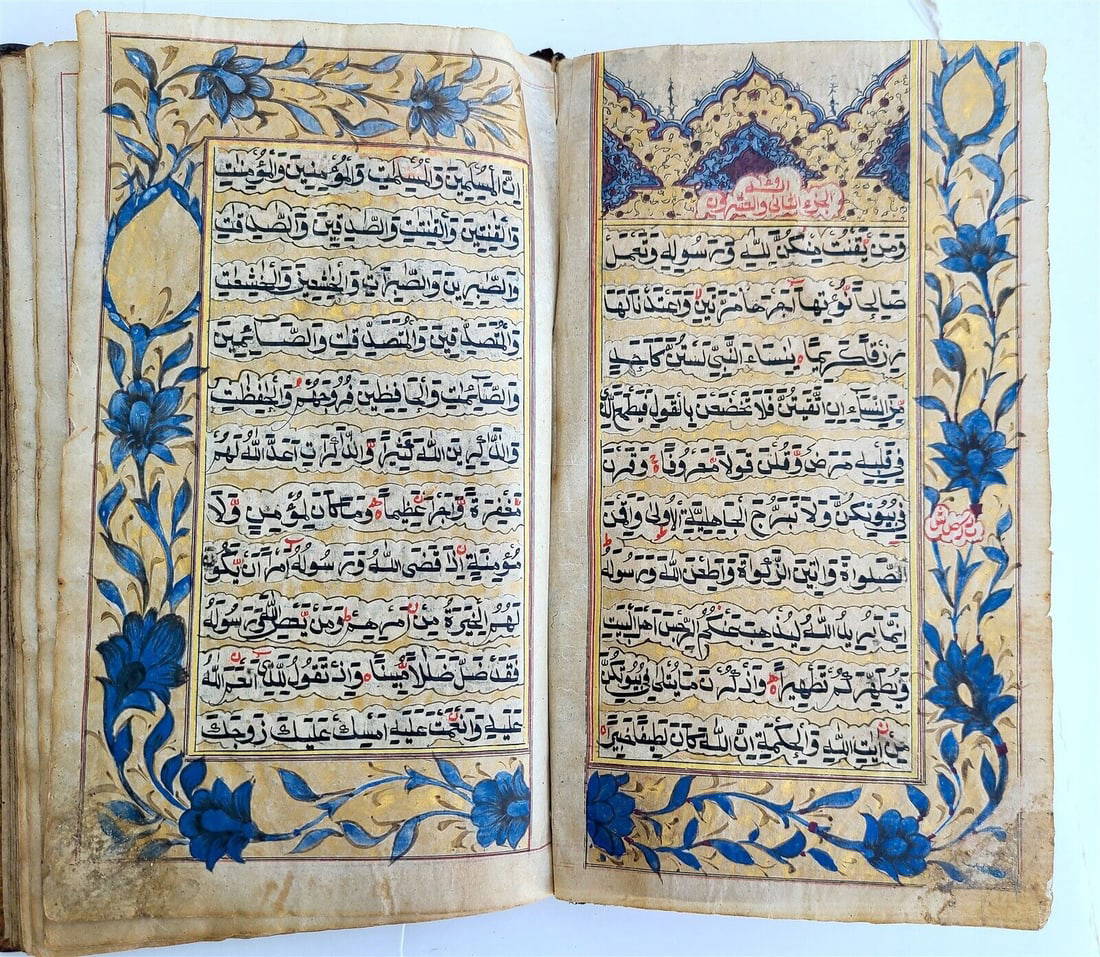 الجزء الثانى والعشرون
وَمَن يَقْنُتْ مِنكُنَّ لِلّٰهِ وَرَسُولِهِ وَتَعْمَلْ
صَالِحًا نُؤْتِهَا أَجْرَهَا مَرَّتَيْنِ وَاَعْتَدْنَا لَهَا
رِزْقًا كَرِيمًا يٰنِسَاءَ النَّبِيِّ لَسْتُنَّ كَأَحَدٍ
مِّنَ النِّسَاءِ اِنِ اتَّقَيْتُنَّ فَلَا تَخْضَعْنَ بِالْقَوْلِ فَيَطْمَعَ الَّذِي
فِي قَلْبِهِ مَرَضٌ وَّقُلْنَ قَوْلًا مَّعْرُوفًا وَقَرْنَ
فِي بُيُوتِكُنَّ وَلَا تَبَرَّجْنَ تَبَرُّجَ الْجَاهِلِيَّةِ الْاُولٰى وَاَقِمْنَ
الصَّلٰوةَ وَاٰتِينَ الزَّكٰوةَ وَاَطِعْنَ اللّٰهَ وَرَسُولَهُ
اِنَّمَا يُرِيدُ اللّٰهُ لِيُذْهِبَ عَنكُمُ الرِّجْسَ اَهْلَ الْبَيْتِ
وَيُطَهِّرَكُمْ تَطْهِيرًا وَاذْكُرْنَ مَا يُتْلٰى فِي بُيُوتِكُنَّ
مِنْ اٰيٰتِ اللّٰهِ وَالْحِكْمَةِ اِنَّ اللّٰهَ كَانَ لَطِيفًا خَبِيرًا
اِنَّ الْمُسْلِمِينَ وَالْمُسْلِمٰتِ وَالْمُؤْمِنِينَ وَالْمُؤْمِنٰتِ
وَالْقٰنِتِينَ وَالْقٰنِتٰتِ وَالصّٰدِقِينَ وَالصّٰدِقٰتِ
وَالصّٰبِرِينَ وَالصّٰبِرٰتِ وَالْخٰشِعِينَ وَالْخٰشِعٰتِ
وَالْمُتَصَدِّقِينَ وَالْمُتَصَدِّقٰتِ وَالصَّائِمِينَ
وَالصّٰئِمٰتِ وَالْحٰفِظِينَ فُرُوجَهُمْ وَالْحٰفِظٰتِ
وَالذّٰكِرِينَ اللّٰهَ كَثِيرًا وَّالذّٰكِرٰتِ اَعَدَّ اللّٰهُ لَهُمْ
مَّغْفِرَةً وَّاَجْرًا عَظِيمًا وَمَا كَانَ لِمُؤْمِنٍ وَّلَا
مُؤْمِنَةٍ اِذَا قَضَى اللّٰهُ وَرَسُولُهُ اَمْرًا اَنْ يَّكُونَ
لَهُمُ الْخِيَرَةُ مِنْ اَمْرِهِمْ وَمَنْ يَّعْصِ اللّٰهَ وَرَسُولَهُ
فَقَدْ ضَلَّ ضَلٰلًا مُّبِينًا وَاِذْ تَقُولُ لِلَّذِي اَنْعَمَ اللّٰهُ
عَلَيْهِ وَاَنْعَمْتَ عَلَيْهِ اَمْسِكْ عَلَيْكَ زَوْجَكَ